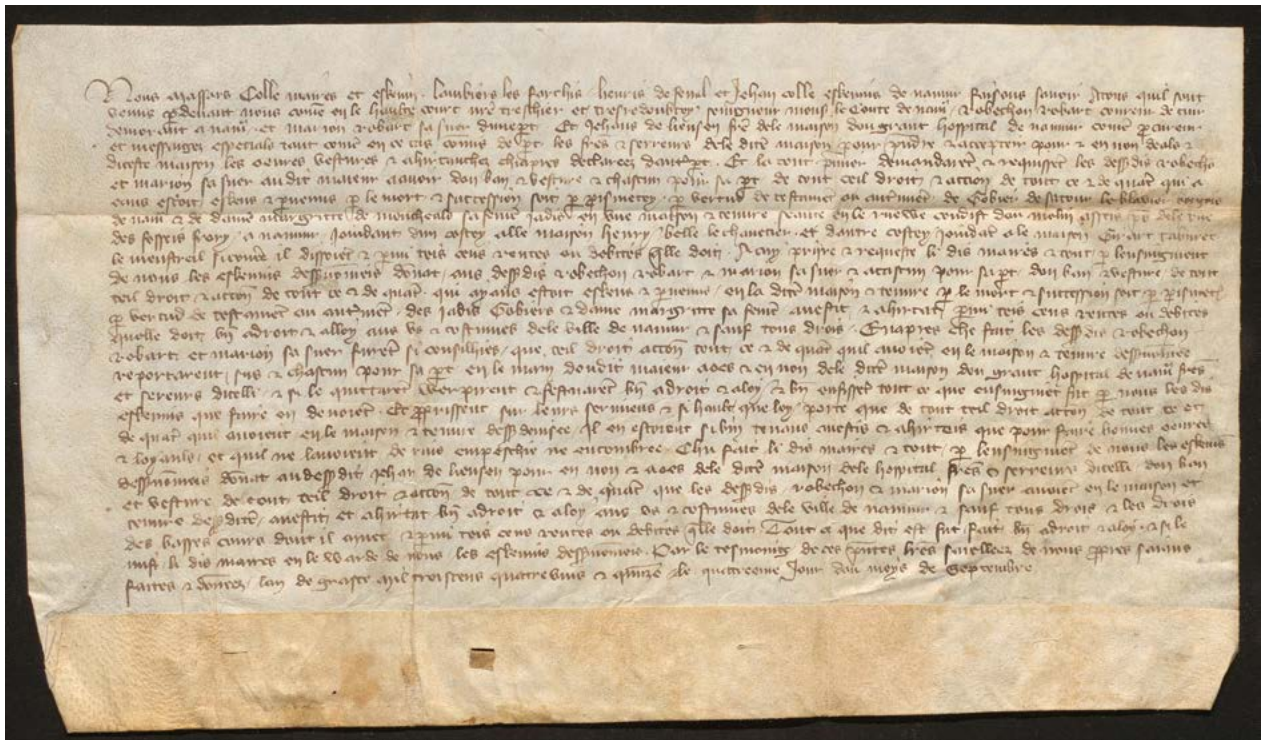 Nous Massars Colle maires et eskevin. Lambiers les farchis henris de fenal et Jehan colle eskevins de namur faisons savoir A tous quil sont
venus p devant nous come en le haulte court nre treschier et tresredoubtey soingneur mons le Conte de nam Robechon robart conreur de cur
demorant a nam et marion robart sa suer dune pt Et Jehans de lieusen fre dele maison don grant hospital de namur come pcureur
et messagez especials tant come en ce cas comis de pt les fres & serreurs dele dite maison pour pndre & accepteir pour & en non dealz &
diceste maison les oevres vestures & ahirtanches chiapres declareez dautre pt Et la tout pmier demandaret & requiset les dessdis robecho
et marion sa suer audit maieur a avoir don ban & vesture & chascun pour sa pt de tout teil droit & action de tout ce & de quat qui a
eaus estoit eskeus & pvenus p le mort & succession soit p pismetey p vertud de testamet ou autmet de Gobier de satour le clavier borgois
de nam & de dame margritte de moncheals sa feme jadis en une maison & tenure seante en le ruewe condist don molin
des fosseis frory a namur joindant dun costey alle maison henry belle le chavetier et dautre costey joindat a le maison Girart
le menestreil sicome il disoiet & pmi teis cens rentes ou debites qlle doit A cuy priire & requeste li dis maires & tout p lensignmet
de nous les eskevins dessnomeis donat aus dessdis robechon robart & marion sa suer & a chascun pour sa pt don ban & vesture de tout
teil droit & acton de tout ce & de quat qui ayaus estoit eskeus & pvenus en la dite maison & tenure p le mort & succession soit p pismetey
p vertud de testamet ou autmet des jadis Gobiers & dame margritte sa feme avestit & ahirtat pmi teis cens rentes ou debites
quelle doit bn adroit & alloy aus us & costumes dele ville de namur & sauf tous drois Enapres che fait les dessdis robechon
robart et marion sa suer furet si consilhies que teil droit acton tout ce & de quat quil avoiet en le maison & tenure dessnomee
reportarent sus & chascun pour sa pt en le main doudit maieur aoes & en non dele dite maison don grant hospital de nam fres
et sereurs dicelli & si le quittaret werpirent & festuaret bn adroit & aloy & bn enfisset tout ce que ensignmet fut p nous les dis
eskevins que faire en devoiet Et prissent sur leurs sermens & si hault que loy porte que de tout teil droit acton de tout ce et
de quat quil avoient en le maison & tenure dess devisee Il en estoient si bn tenans avestis & ahirteis que pour faire bonnes oevres
& loyauls et quil ne lavoient de rins empeschie ne encombre Chu fait li dis maires & tout p lensignmet de nous les eskevins
dessnomeis donat audessdit Jehan de lieusen pour en non & aoes dele dite maison dele hospital fres & serreurs dicelli don ban
et vesture de tout teil droit & acton de tout ce & de quat que les dessdis robechon & marion sa suer avoiet en le maison et
tenure dessdite avestit et ahirtat bn adroit & aloy aus us & costumes dele ville de namur & sauf tous drois & les drois
des basses cours dont il muet & pmi teis cens rentes ou debites qlle doit Tout ce que dit est fut fait bn adroit & aloy & si le
mist li dis maires en le warde de nous les eskevins dessnomeis Par le tesmoing de ces pntes lres saielleez de nous ppres saiauls
faites & doneez lan de grasce mil troiscens quattrevins & quize le quattreme jour don moys de Septembre